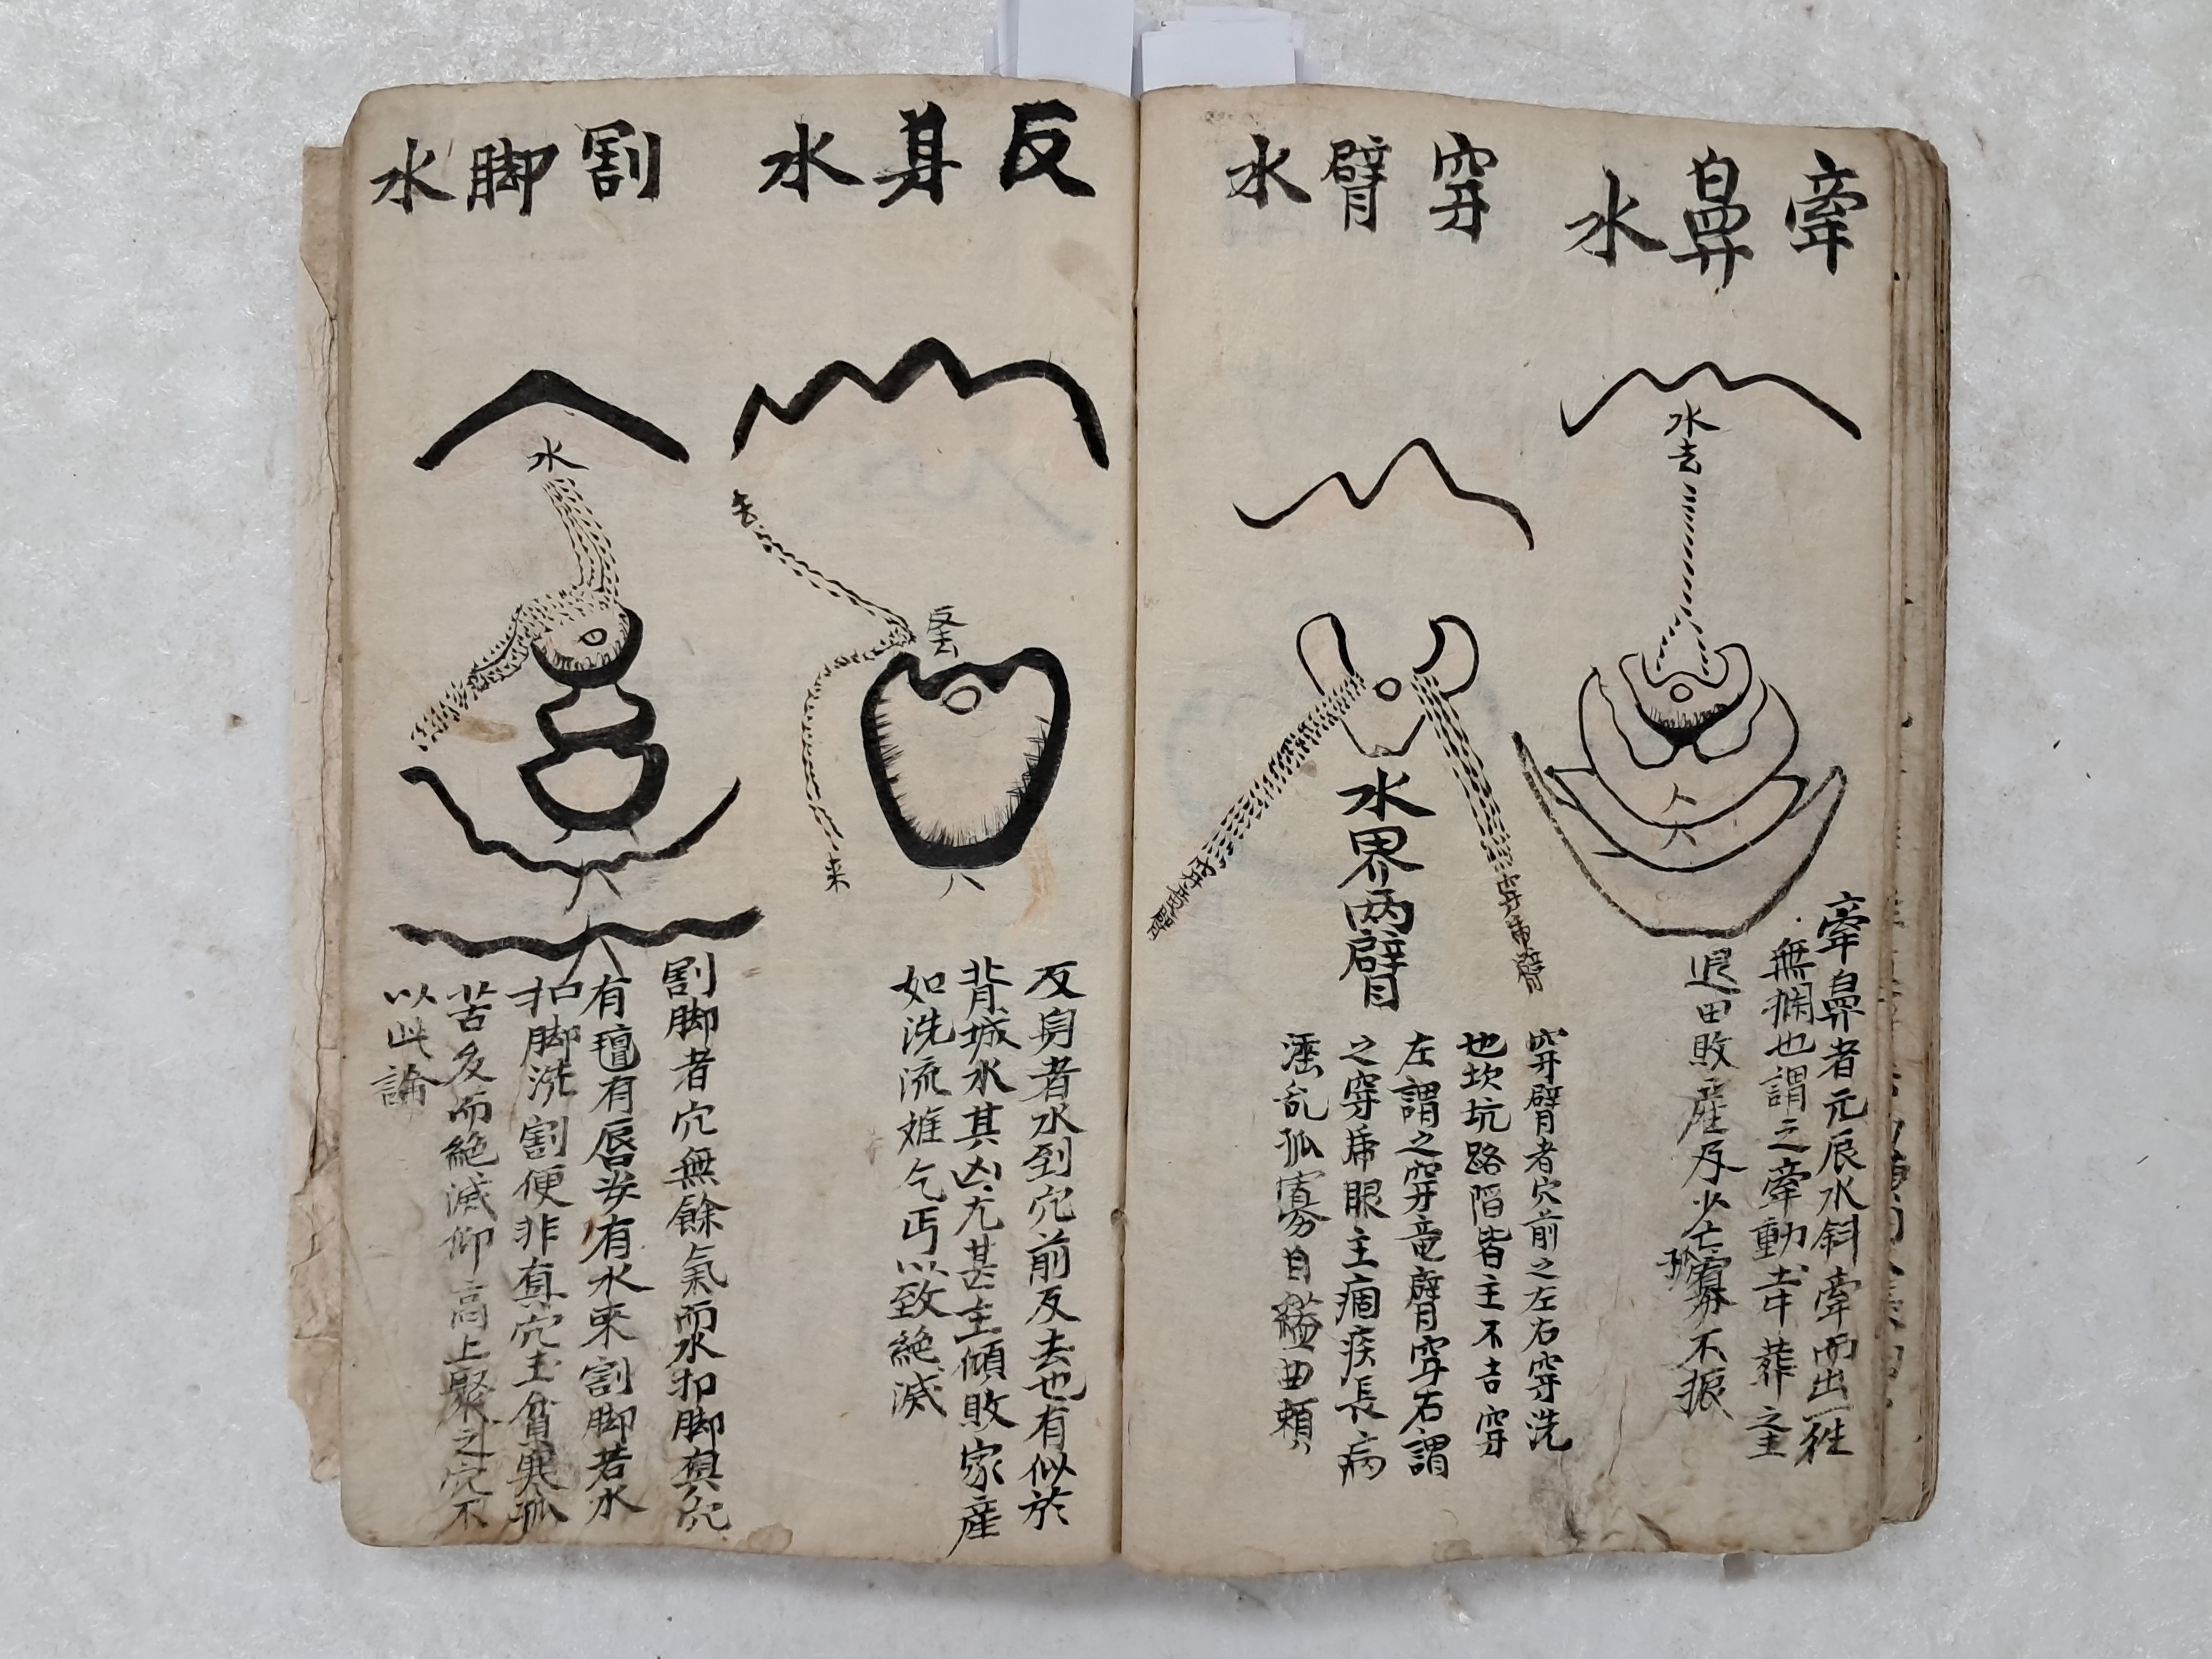 牽鼻水
水去
牽鼻者元辰水斜牽而出一往
無攔也謂之牽動土牛葬之主
退田敗產及少亡孤寡不振
穿臂水
穿虎臂
水界两臂
穿臂者穴前之左右穿洗
也坎坑路陷皆主不吉穿
左謂之穿竜臂穿右謂
之穿虎眼主痼疾長病
滛乱孤寡自縊曲賴
反身水
去
反去
来
反身者水到穴前反去也有似於
背城水其凶尤甚主傾敗家産
如洗流难乞丐以致絶滅
割脚水
水
割脚者穴無餘氣而水扣脚真穴
有氊有唇安有水来割脚若水
扣脚洗割便非真穴主貧寒孤
苦反而絶滅仰高上聚之穴不
以此論